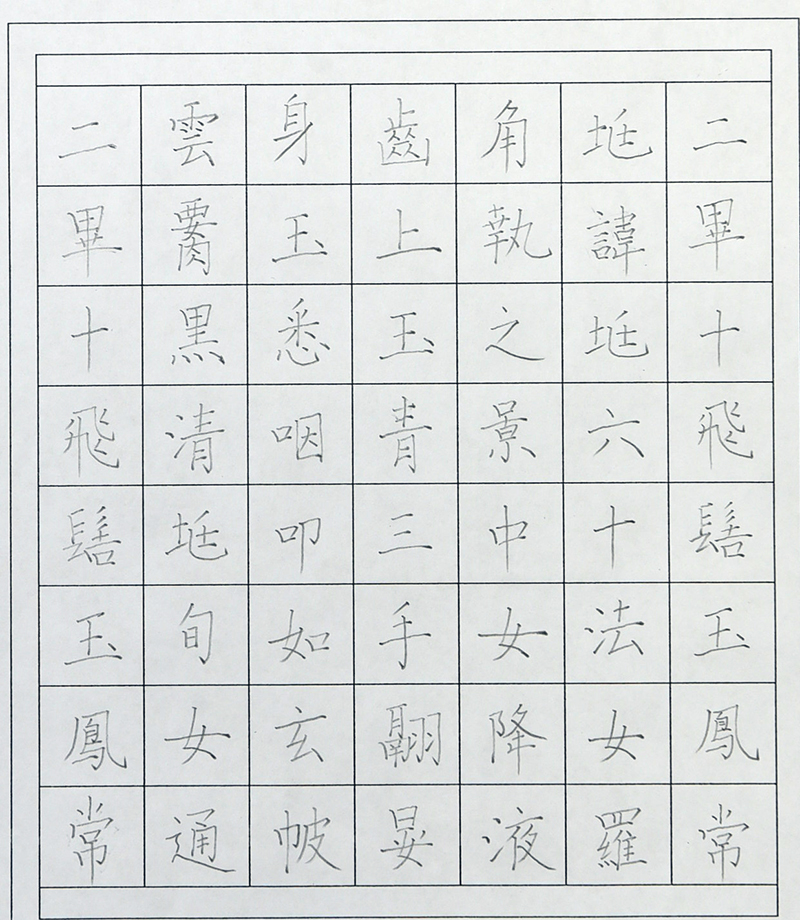 二畢十飛髻玉鳳常
諱六十法女羅
角執之景中女降液
齒上玉青三手翮晏
身玉悉咽叩如玄帔
雲黑清旬女通
二畢十飛髻玉鳳常